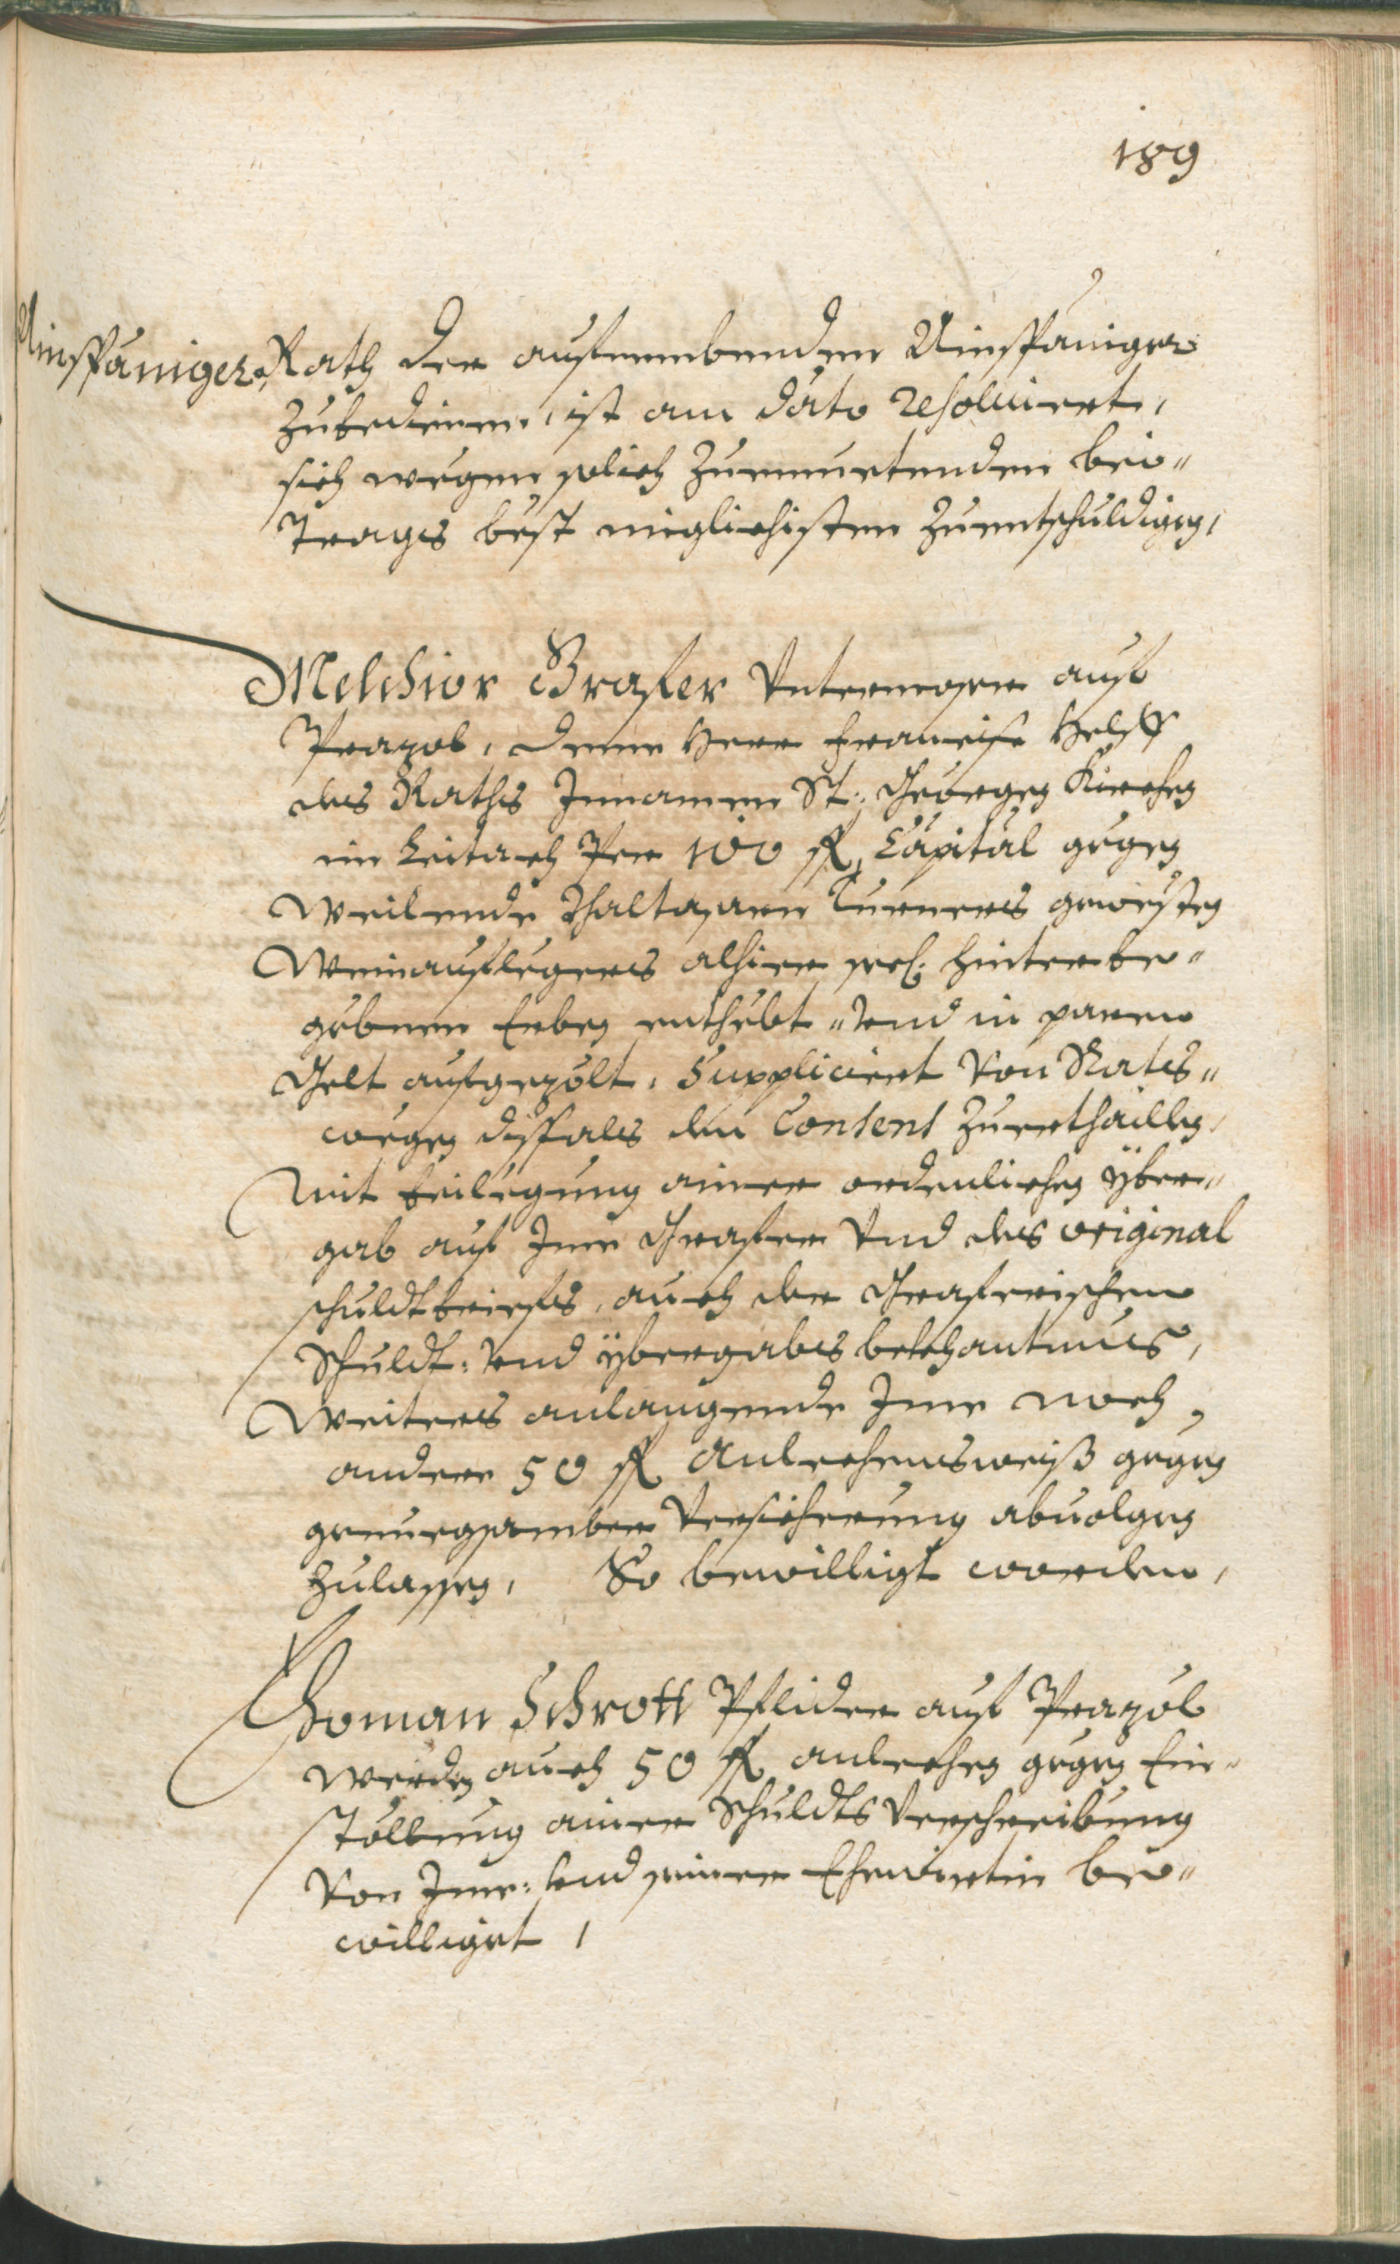 189
Ainspäniger. Rath der aufnembenden Ainspäniger
Zubedienen, ist am dato resoluiert,
sich wegen solich Zuemuetenden bei-
trags best miglichisten Zuentschuldigen,
Melchior Graser Undermoser auf
Prazol, deme Herr Francisc
des Raths Innamen St: Georgen Kirchen
im Leitach Per 100 fl Capital gegen
Weilende Balthasarn Turners gewesten
Weinauflegers alhier sel: hinterbe-
gebnen Erben enthebt, und in parem
Gelt aufgezölt, Suppliciert Von Rats-
wegen dissfals den Consens Zuerthaillen,
mit beilegung ainer ordenlichen yber-
gab auf Ime Graser Und des original
schuldtbriefs, auch der Graserischen
Schuldt: und ybergabs bekhantnus,
Weiters anlangende Ime noch
andere 50 fl Anlechensweiß gegen
genuegsamber Versicherung abuolgen
Zulassen, So bewilligt worden,
Roman Schrott Pflider auf Prazöl
werden auch 50 fl anlechen gegen Ein-
stöllung ainer Schuldts Verschreibung
Von Ime: und seiner Ehewirtin be-
williget,